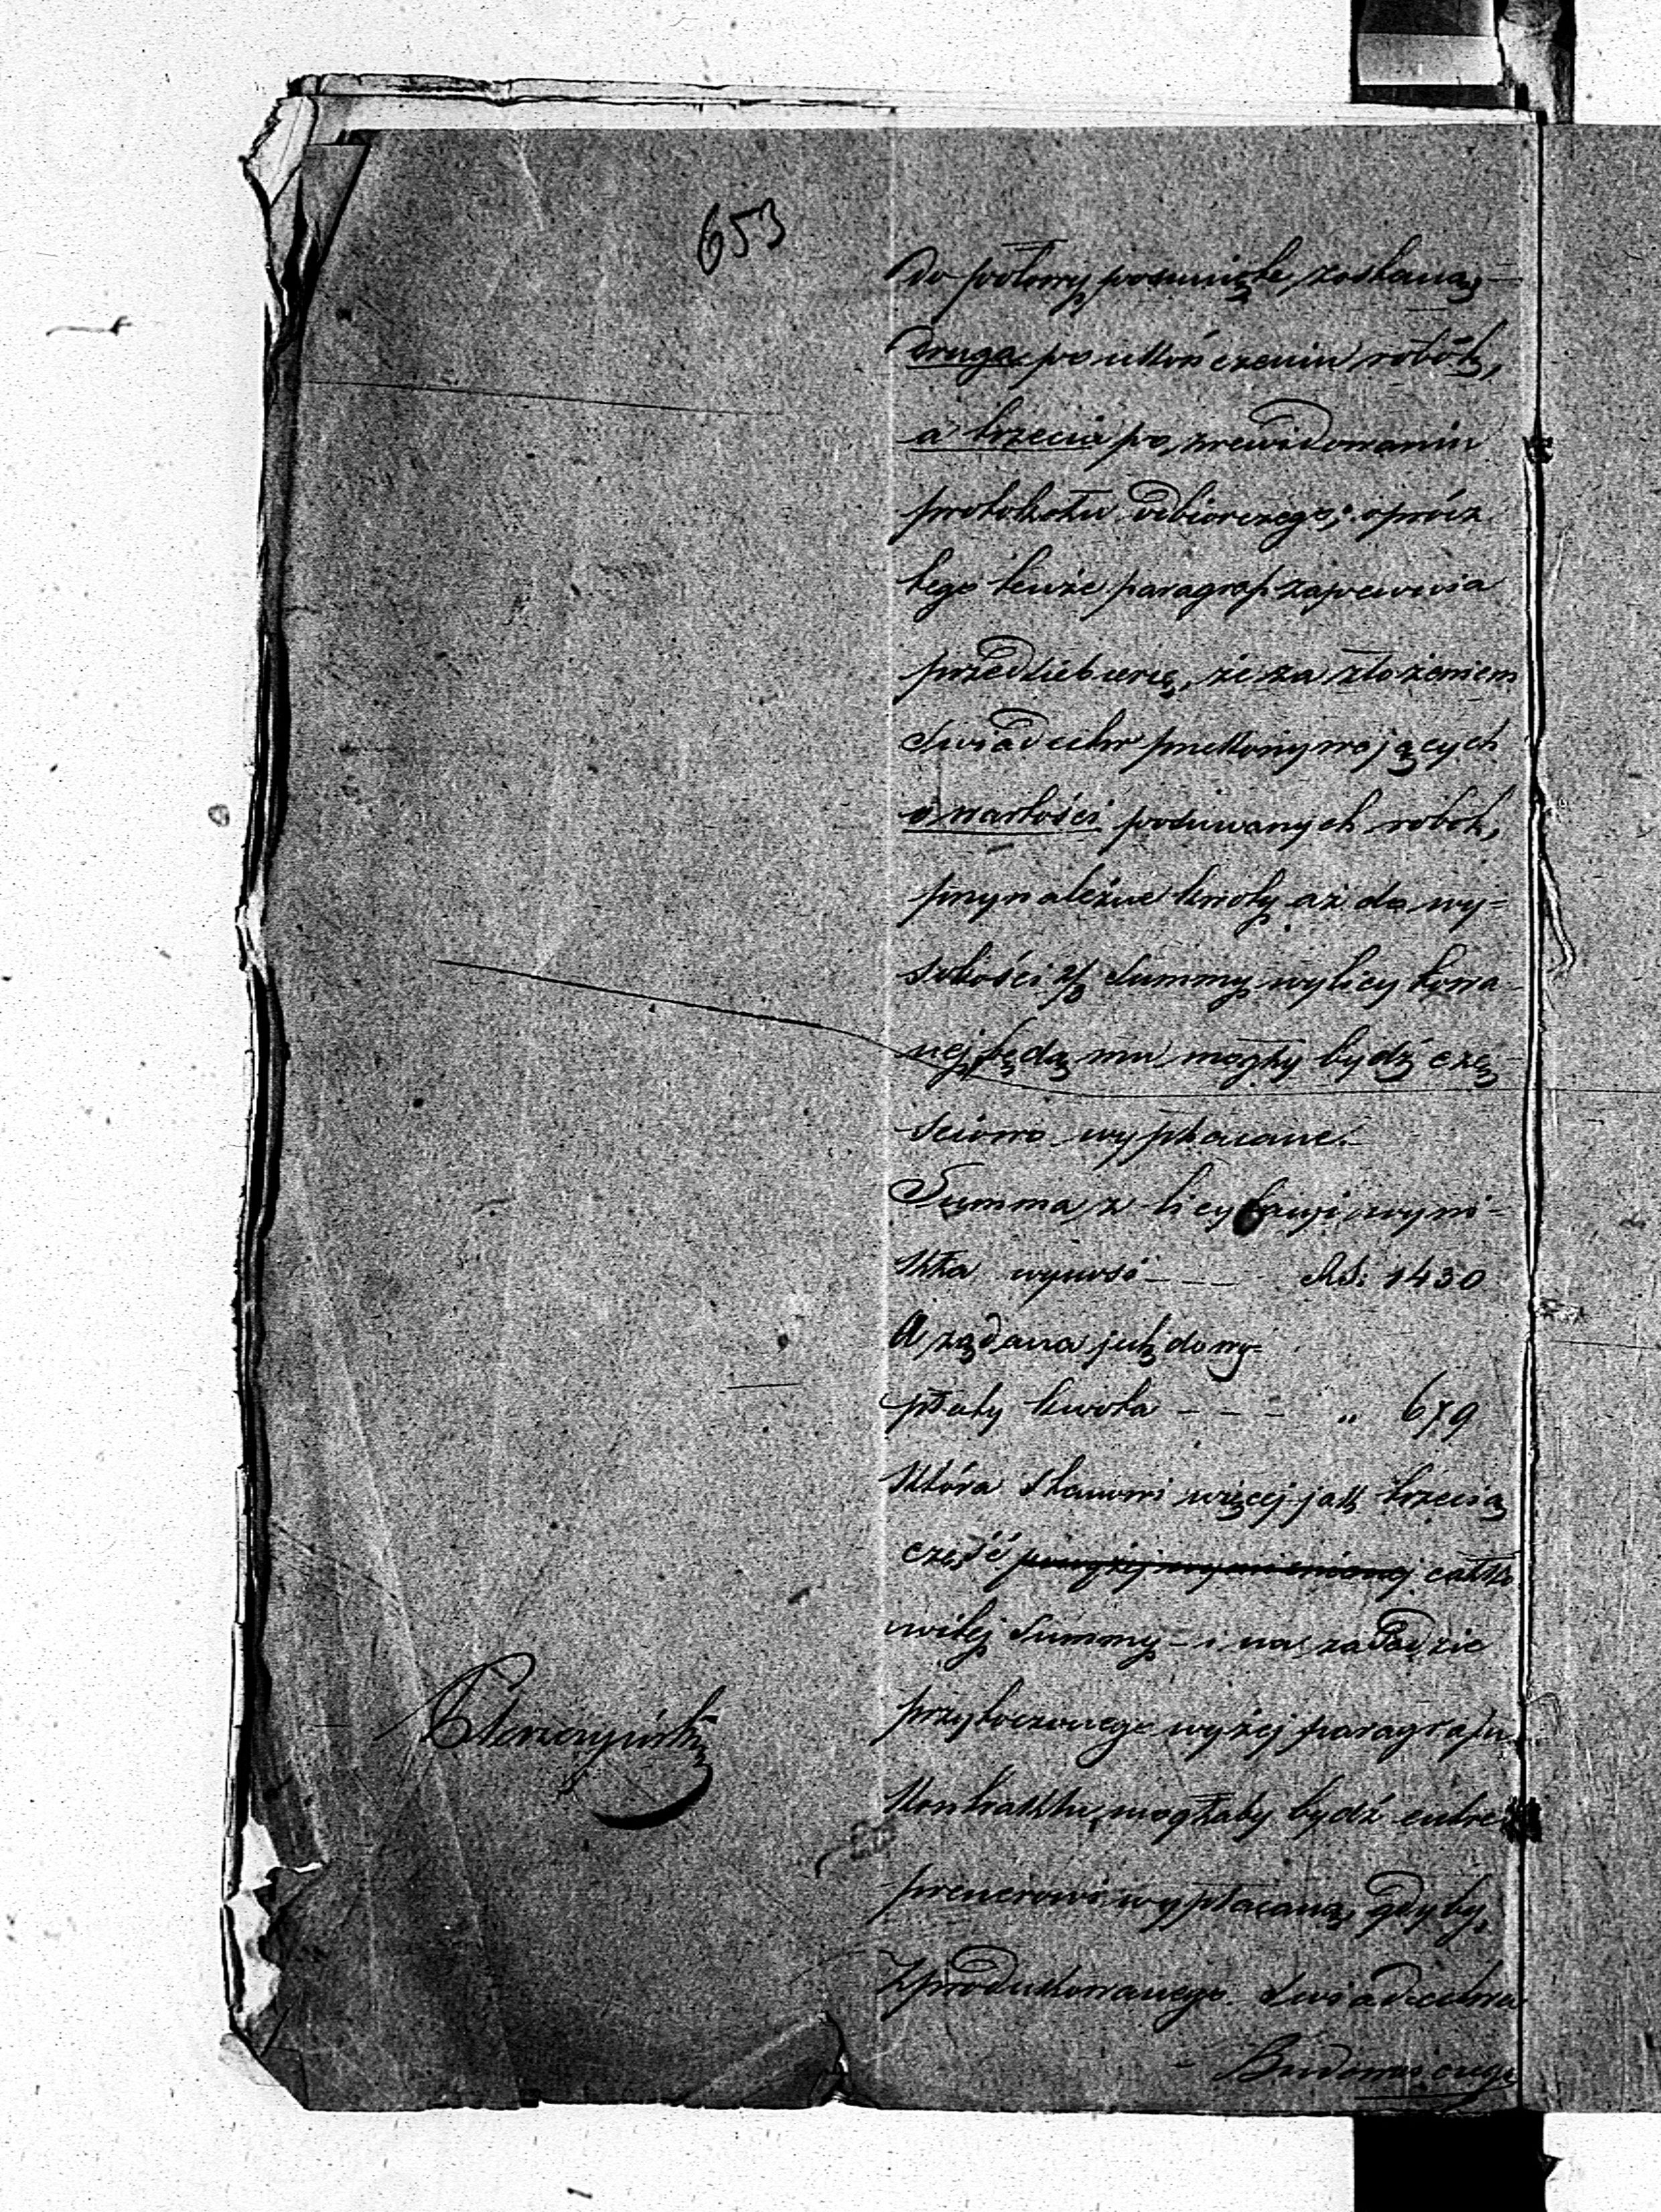 653
do połowy posunięte zostaną,
druga po ukończeniu robót,
a trzecia po zrewidowaniu
protokołu odbiorczego; oprócz
tego tenże paragraf zapewnia
przedsiebiercę, że za złożeniem
Swiadectw przekonywających
o wartości posuwanych robót,
przynależne kwoty aż do wy=
sokości 2/3 Summy wylicytowa-
nej, będą mu mogły bydź czę-
ściowo wypłacane.
Summa z licytacyi wyni-
kła wynosi - - - RS: 1430
A żądana już do wy=
płaty kwota - - - „ 679
która stanowi więcej jak trzecią
część całko
witej Summy - i na zasadzie
przytoczonego wyżej paragrafu
Kontraktu, mogłaby bydź entre
prenerowi wypłacaną, gdyby
z produkowanego Swiadectwa
Budowniczego